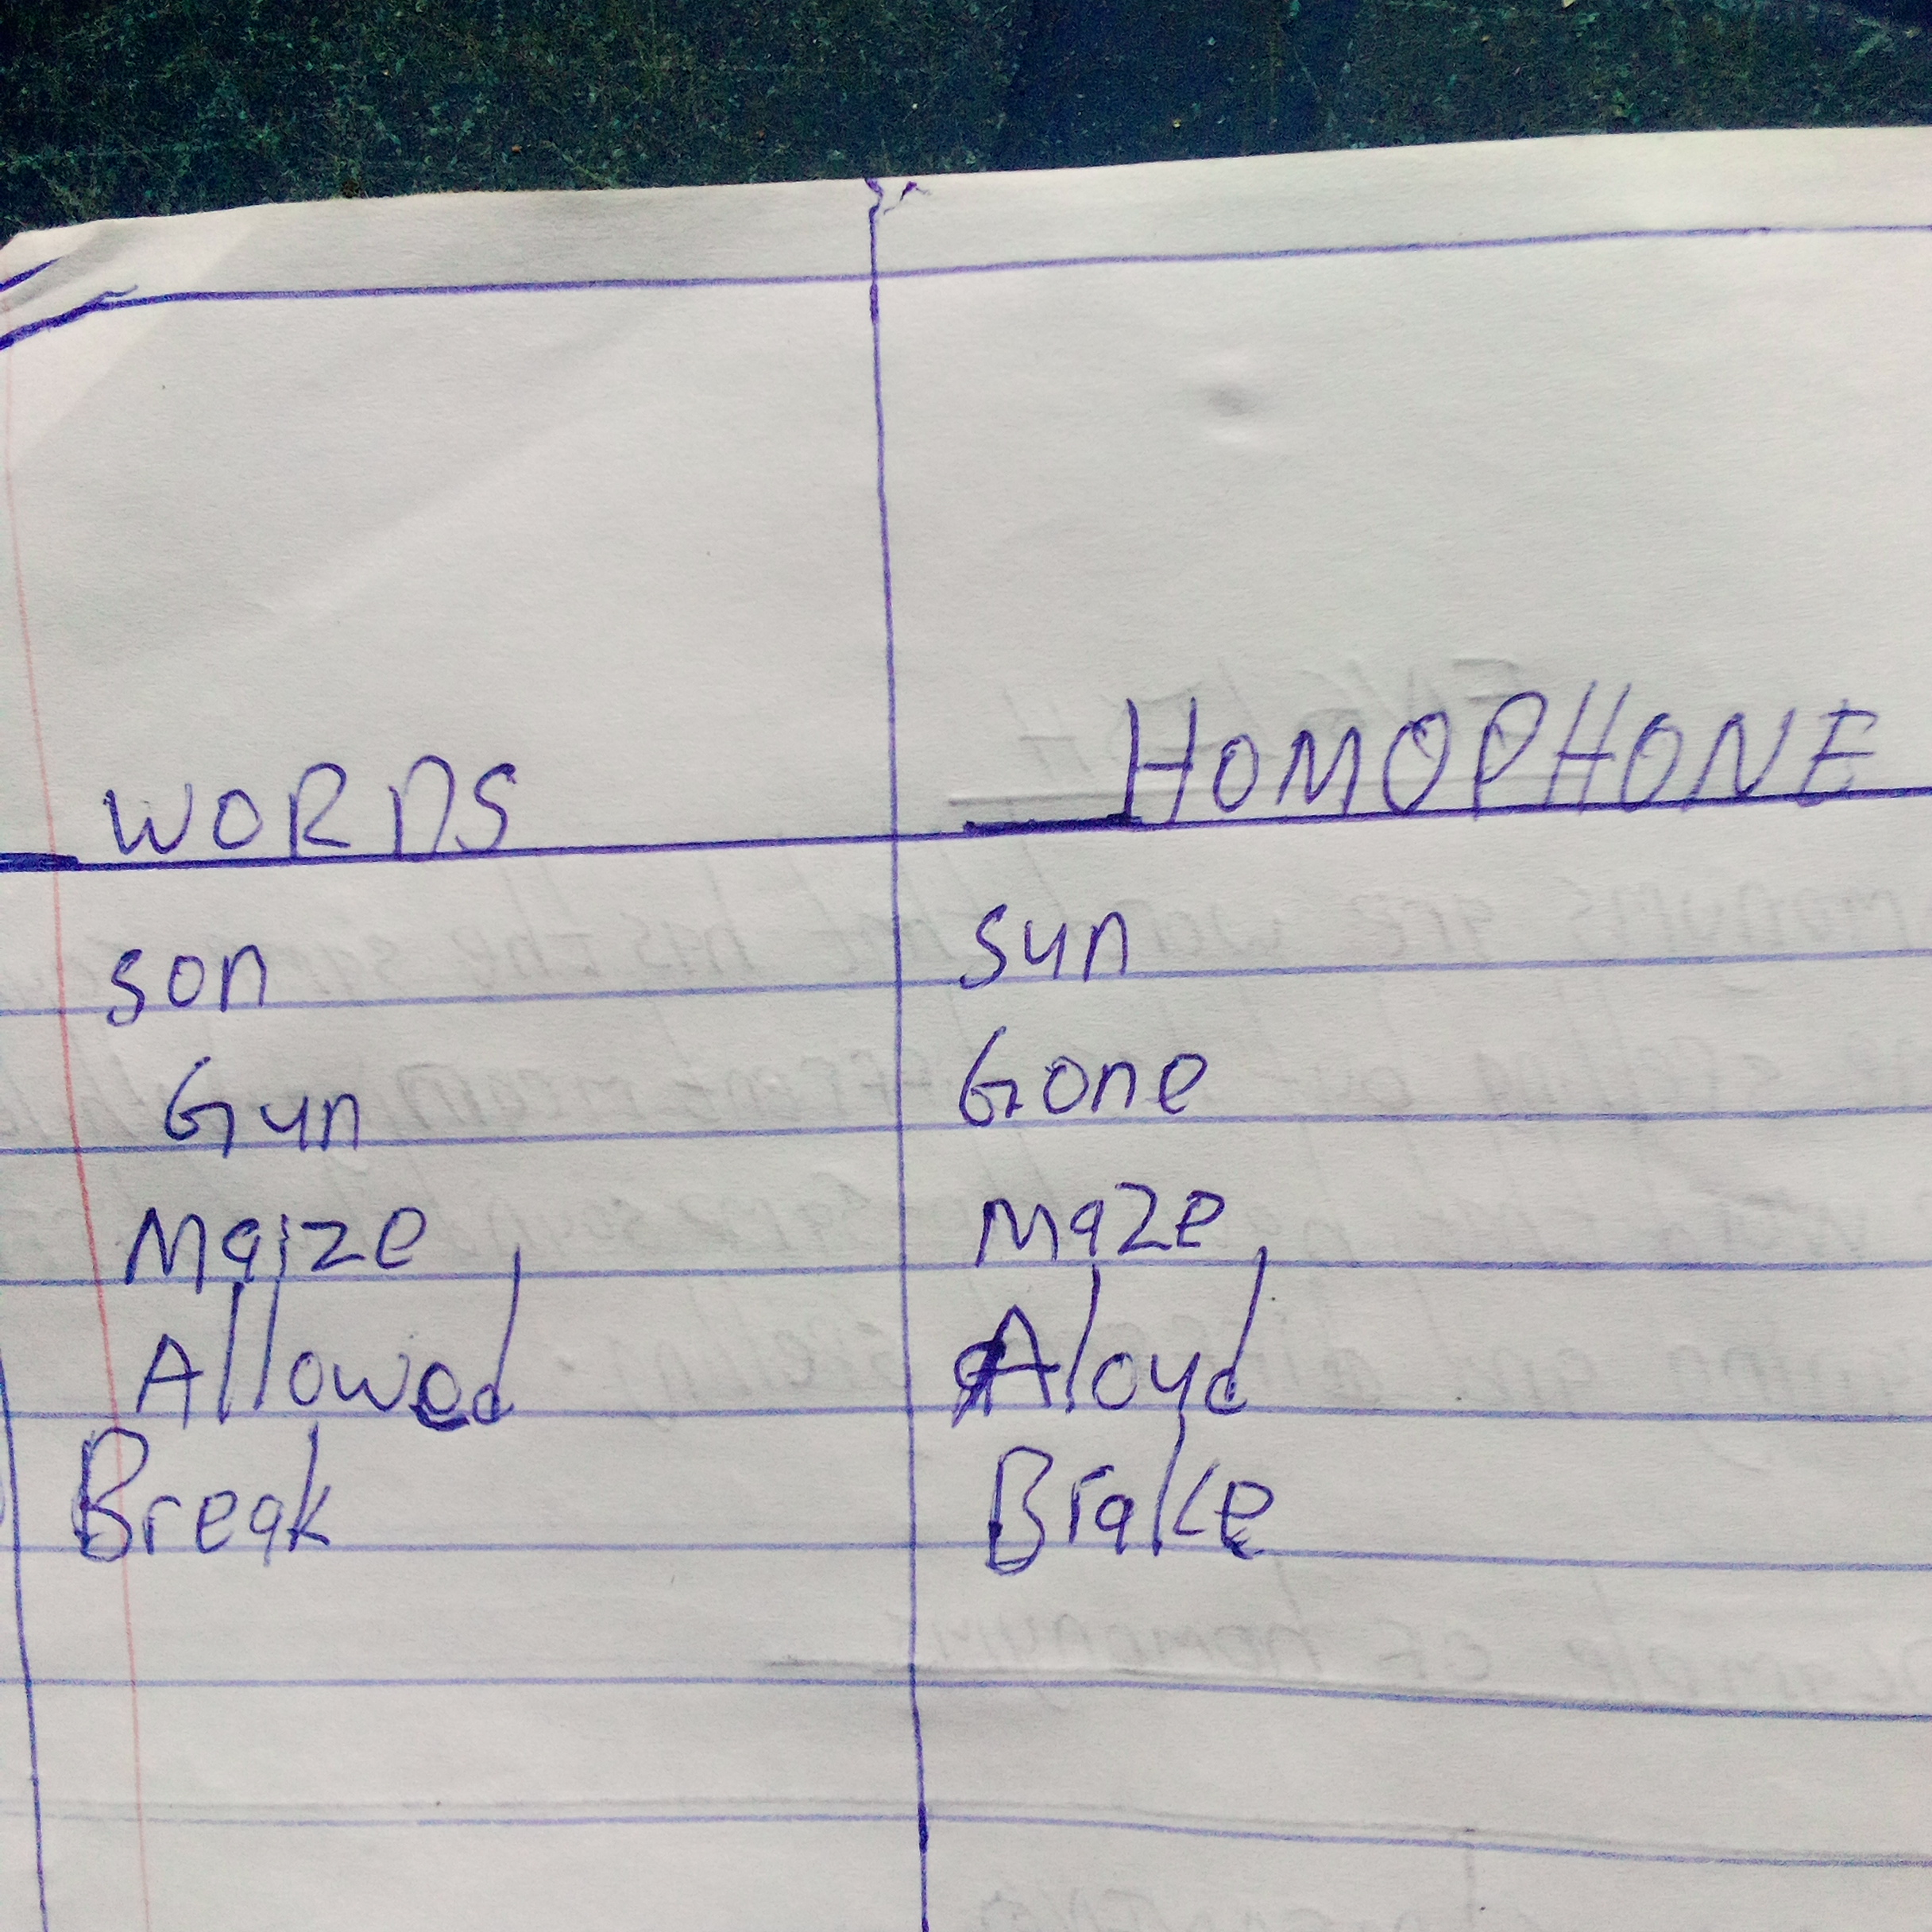 WORDS HOMOPHONE
son sun
Gun Gone
Maize Maze
Allowed Aloud
Break Brake